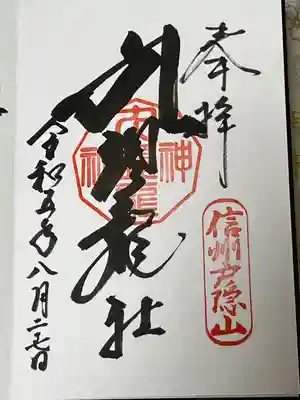 奉拝
信州戸隠山
九頭龍社
令和五年八月二七日